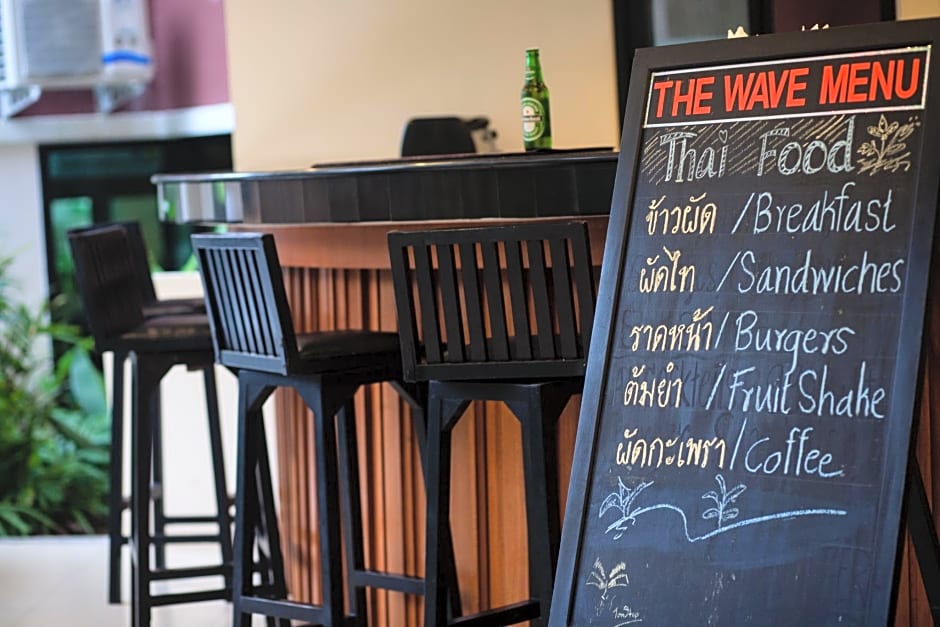 THE WAVE MENU
Thai Food
ข้าวผัด /Breakfast
ผัดไท /Sandwiches
ราดหน้า/Burgers
ต้มยำ /Fruit Shake
ผัดกะเพรา/Coffee